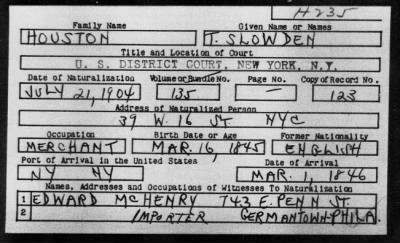 H235
Family Name Given Name or Names
HOUSTON T. SLOWDEN
Title and Location of Court
U. S. DISTRICT COURT, NEW YORK, N.Y.
Date of Naturalization Volume or Bundle No. Page No. Copy of Record No.
JULY 21, 1904 135 — 123
Address of Naturalized Person
39 W. 16 ST NYC
Occupation Birth Date or Age Former Nationality
MERCHANT MAR. 16, 1845 ENGLISH
Port of Arrival in the United States Date of Arrival
NY NY MAR. 1, 1846
Names, Addresses and Occupations of Witnesses To Naturalization
1 EDWARD McHENRY 743 E. PENN ST.
2 IMPORTER GERMANTOWN-PHILA.